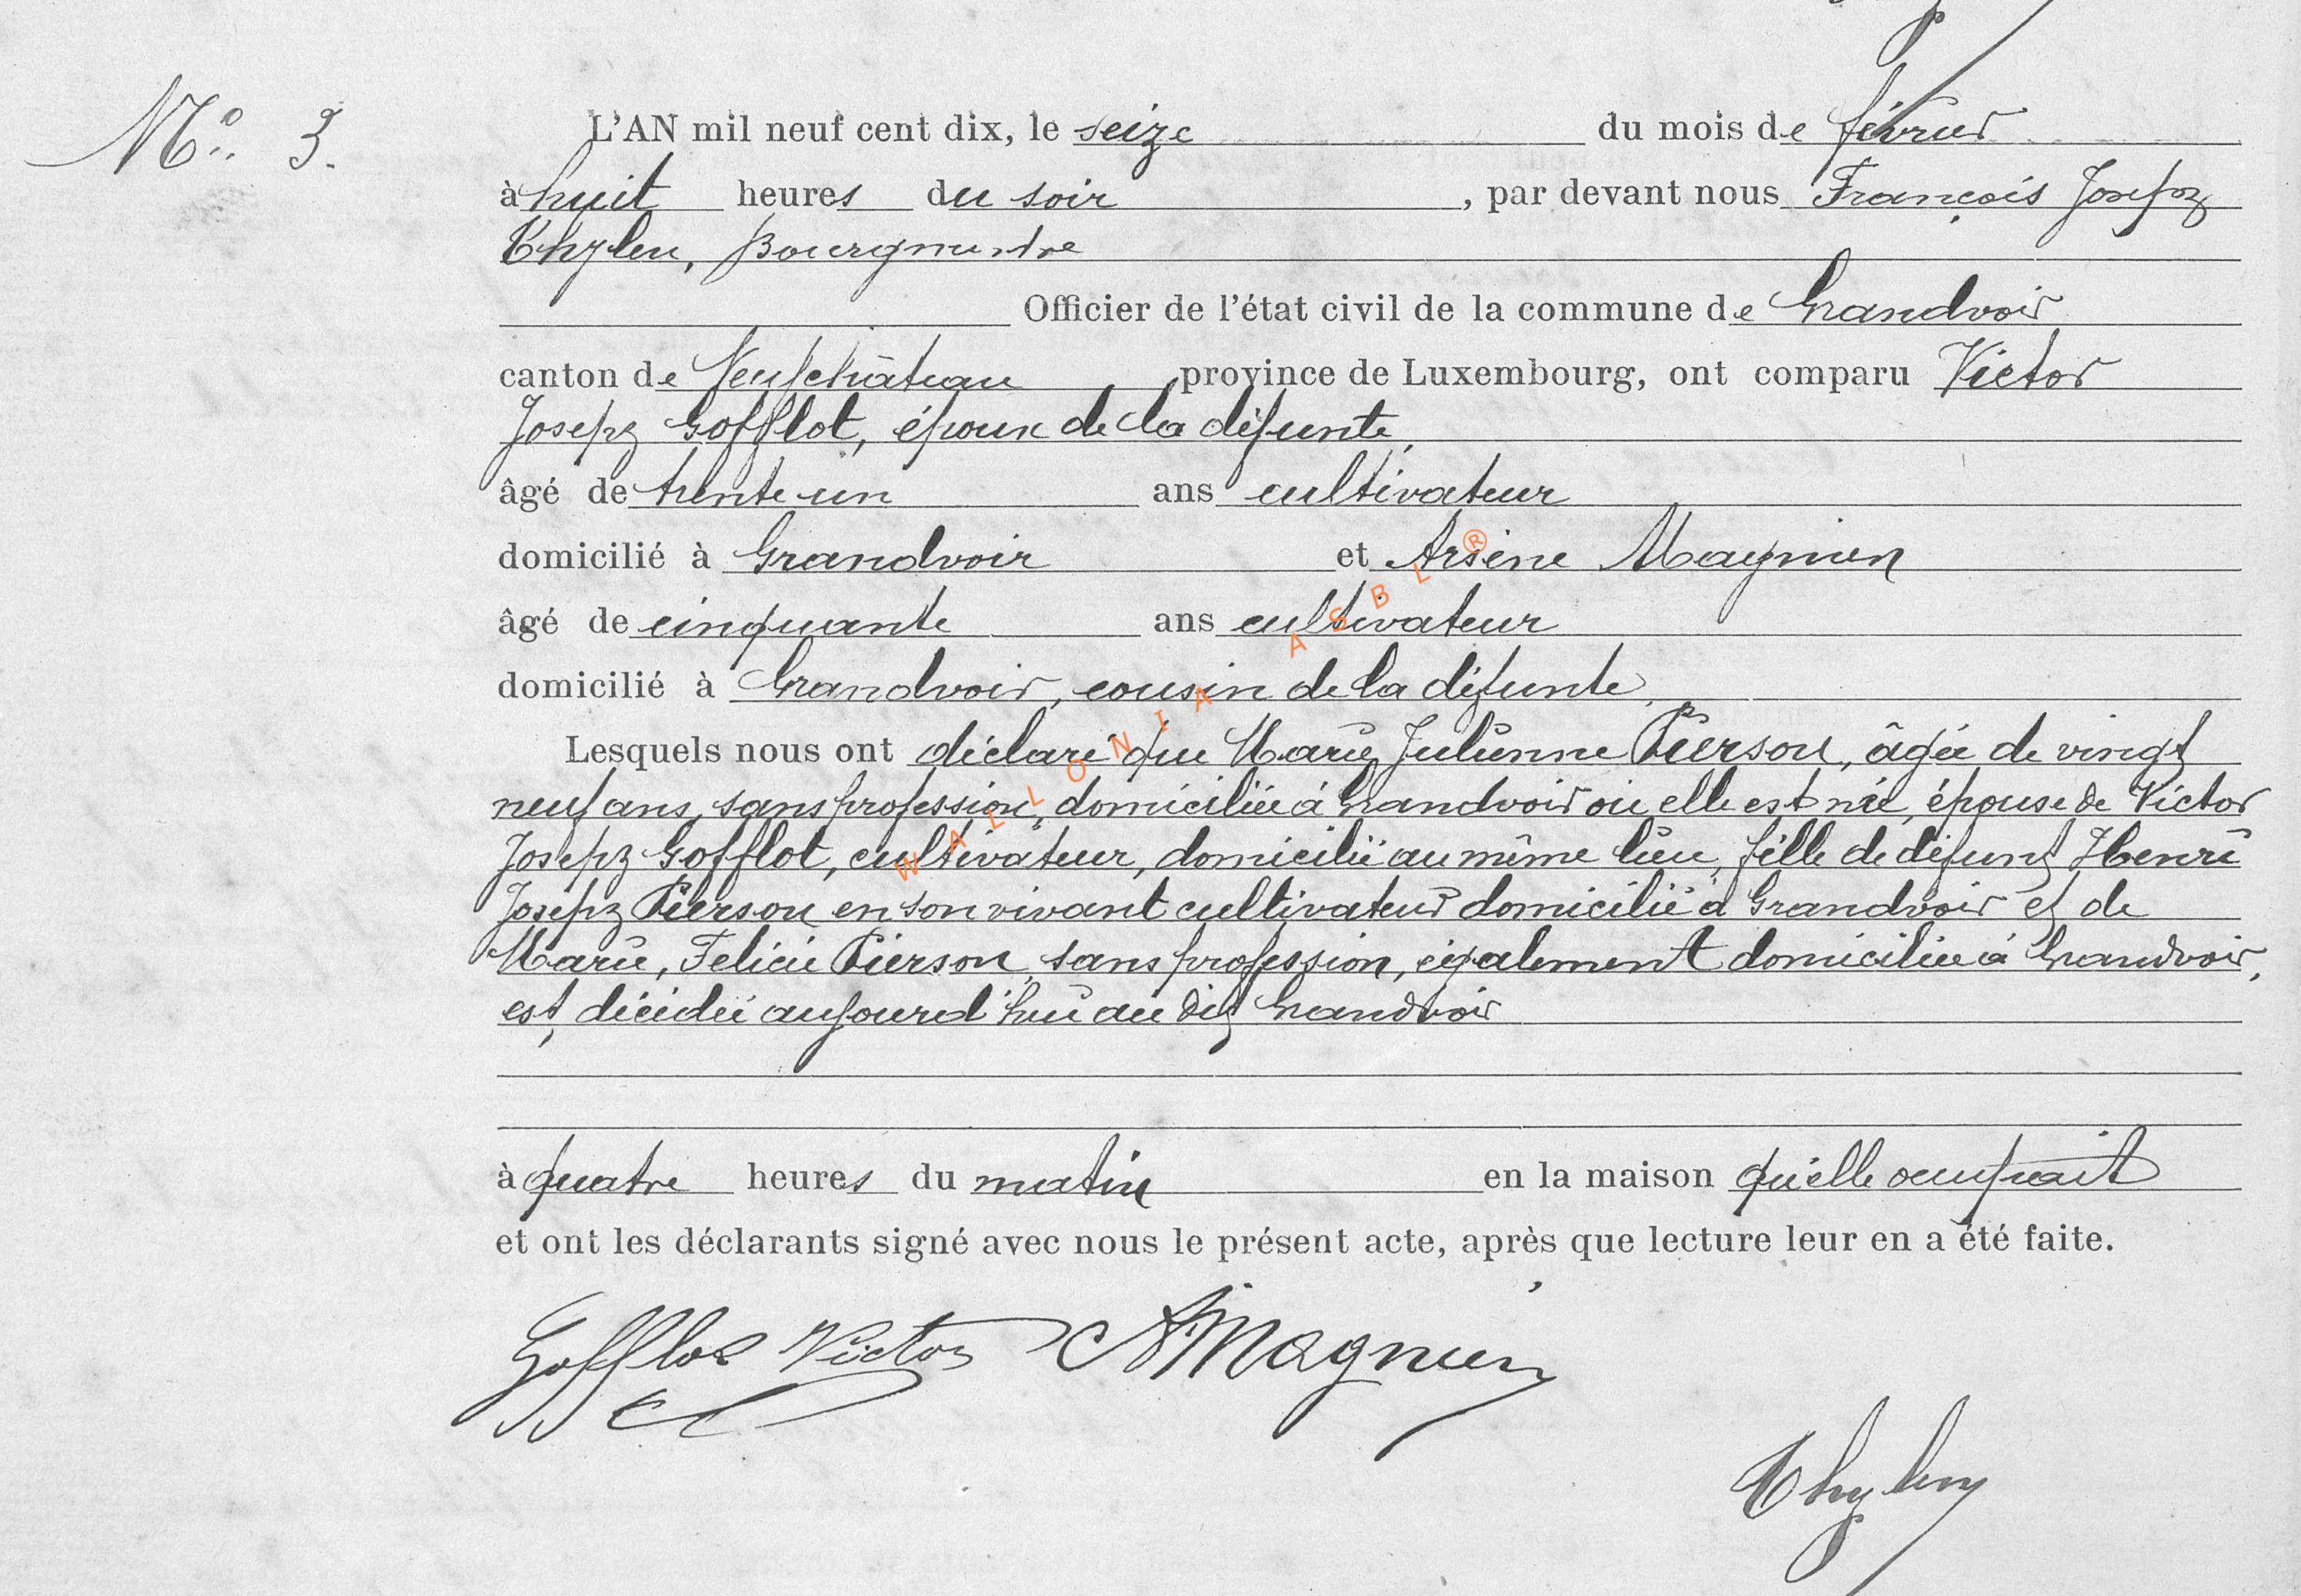 N° 3.
L'AN mil neuf cent dix, le seize du mois de février
à huit heures du soir, par devant nous François Joseph
Thylen, Bourgmestre
Officier de l'état civil de la commune de Grandvoir
canton de Neufchâteau province de Luxembourg, ont comparu Victor
Joseph Gofflot, époux de la défunte,
âgé de trente un ans cultivateur
domicilié à Grandvoir et Arsène Magnien
âgé de cinquante ans cultivateur
domicilié à Grandvoir, cousin de la défunte,
Lesquels nous ont déclaré que Marie Julienne Pierson, âgée de vingt
neuf ans, sans profession, domiciliée à Grandvoir où elle est née, épouse de Victor
Joseph Gofflot, cultivateur, domicilié au même lieu, fille de défunt Henri
Joseph Pierson en son vivant cultivateur domicilié à Grandvoir et de
Marie, Felicie Pierson, sans profession, également domiciliée à Grandvoir,
est, décédée aujourd'hui au dit Grandvoir
à quatre heures du matin en la maison qu'elle occupait
et ont les déclarants signé avec nous le présent acte, après que lecture leur en a été faite.
Gofflot Victor A Magnien
Thylen
WALLONIA ASBL ®